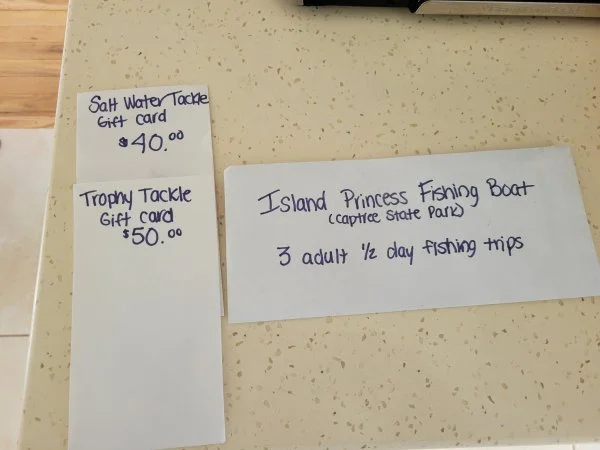 Salt Water Tackle
Gift card
$40.00
Trophy Tackle
Gift card
$50.00
Island Princess Fishing Boat
(Captree State Park)
3 adult 1/2 day fishing trips